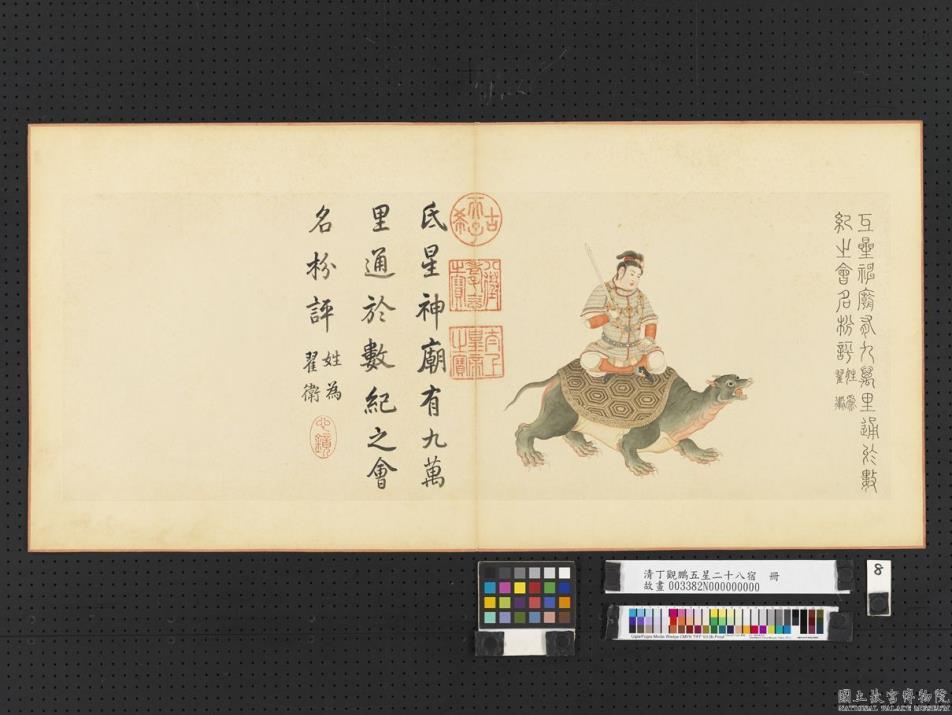 氐星神廟有九萬里通於數
紀之會名枌評姓為
翟衛
古希天子
八徵耄念之寶
太上皇帝之寶
氐星神廟有九萬
里通於數紀之會
名枌評姓為
翟衛
心鏡
清丁觀鵬五星二十八宿 冊
故畫003382N000000000
8
國立故宮博物院
NATIONAL PALACE MUSEUM